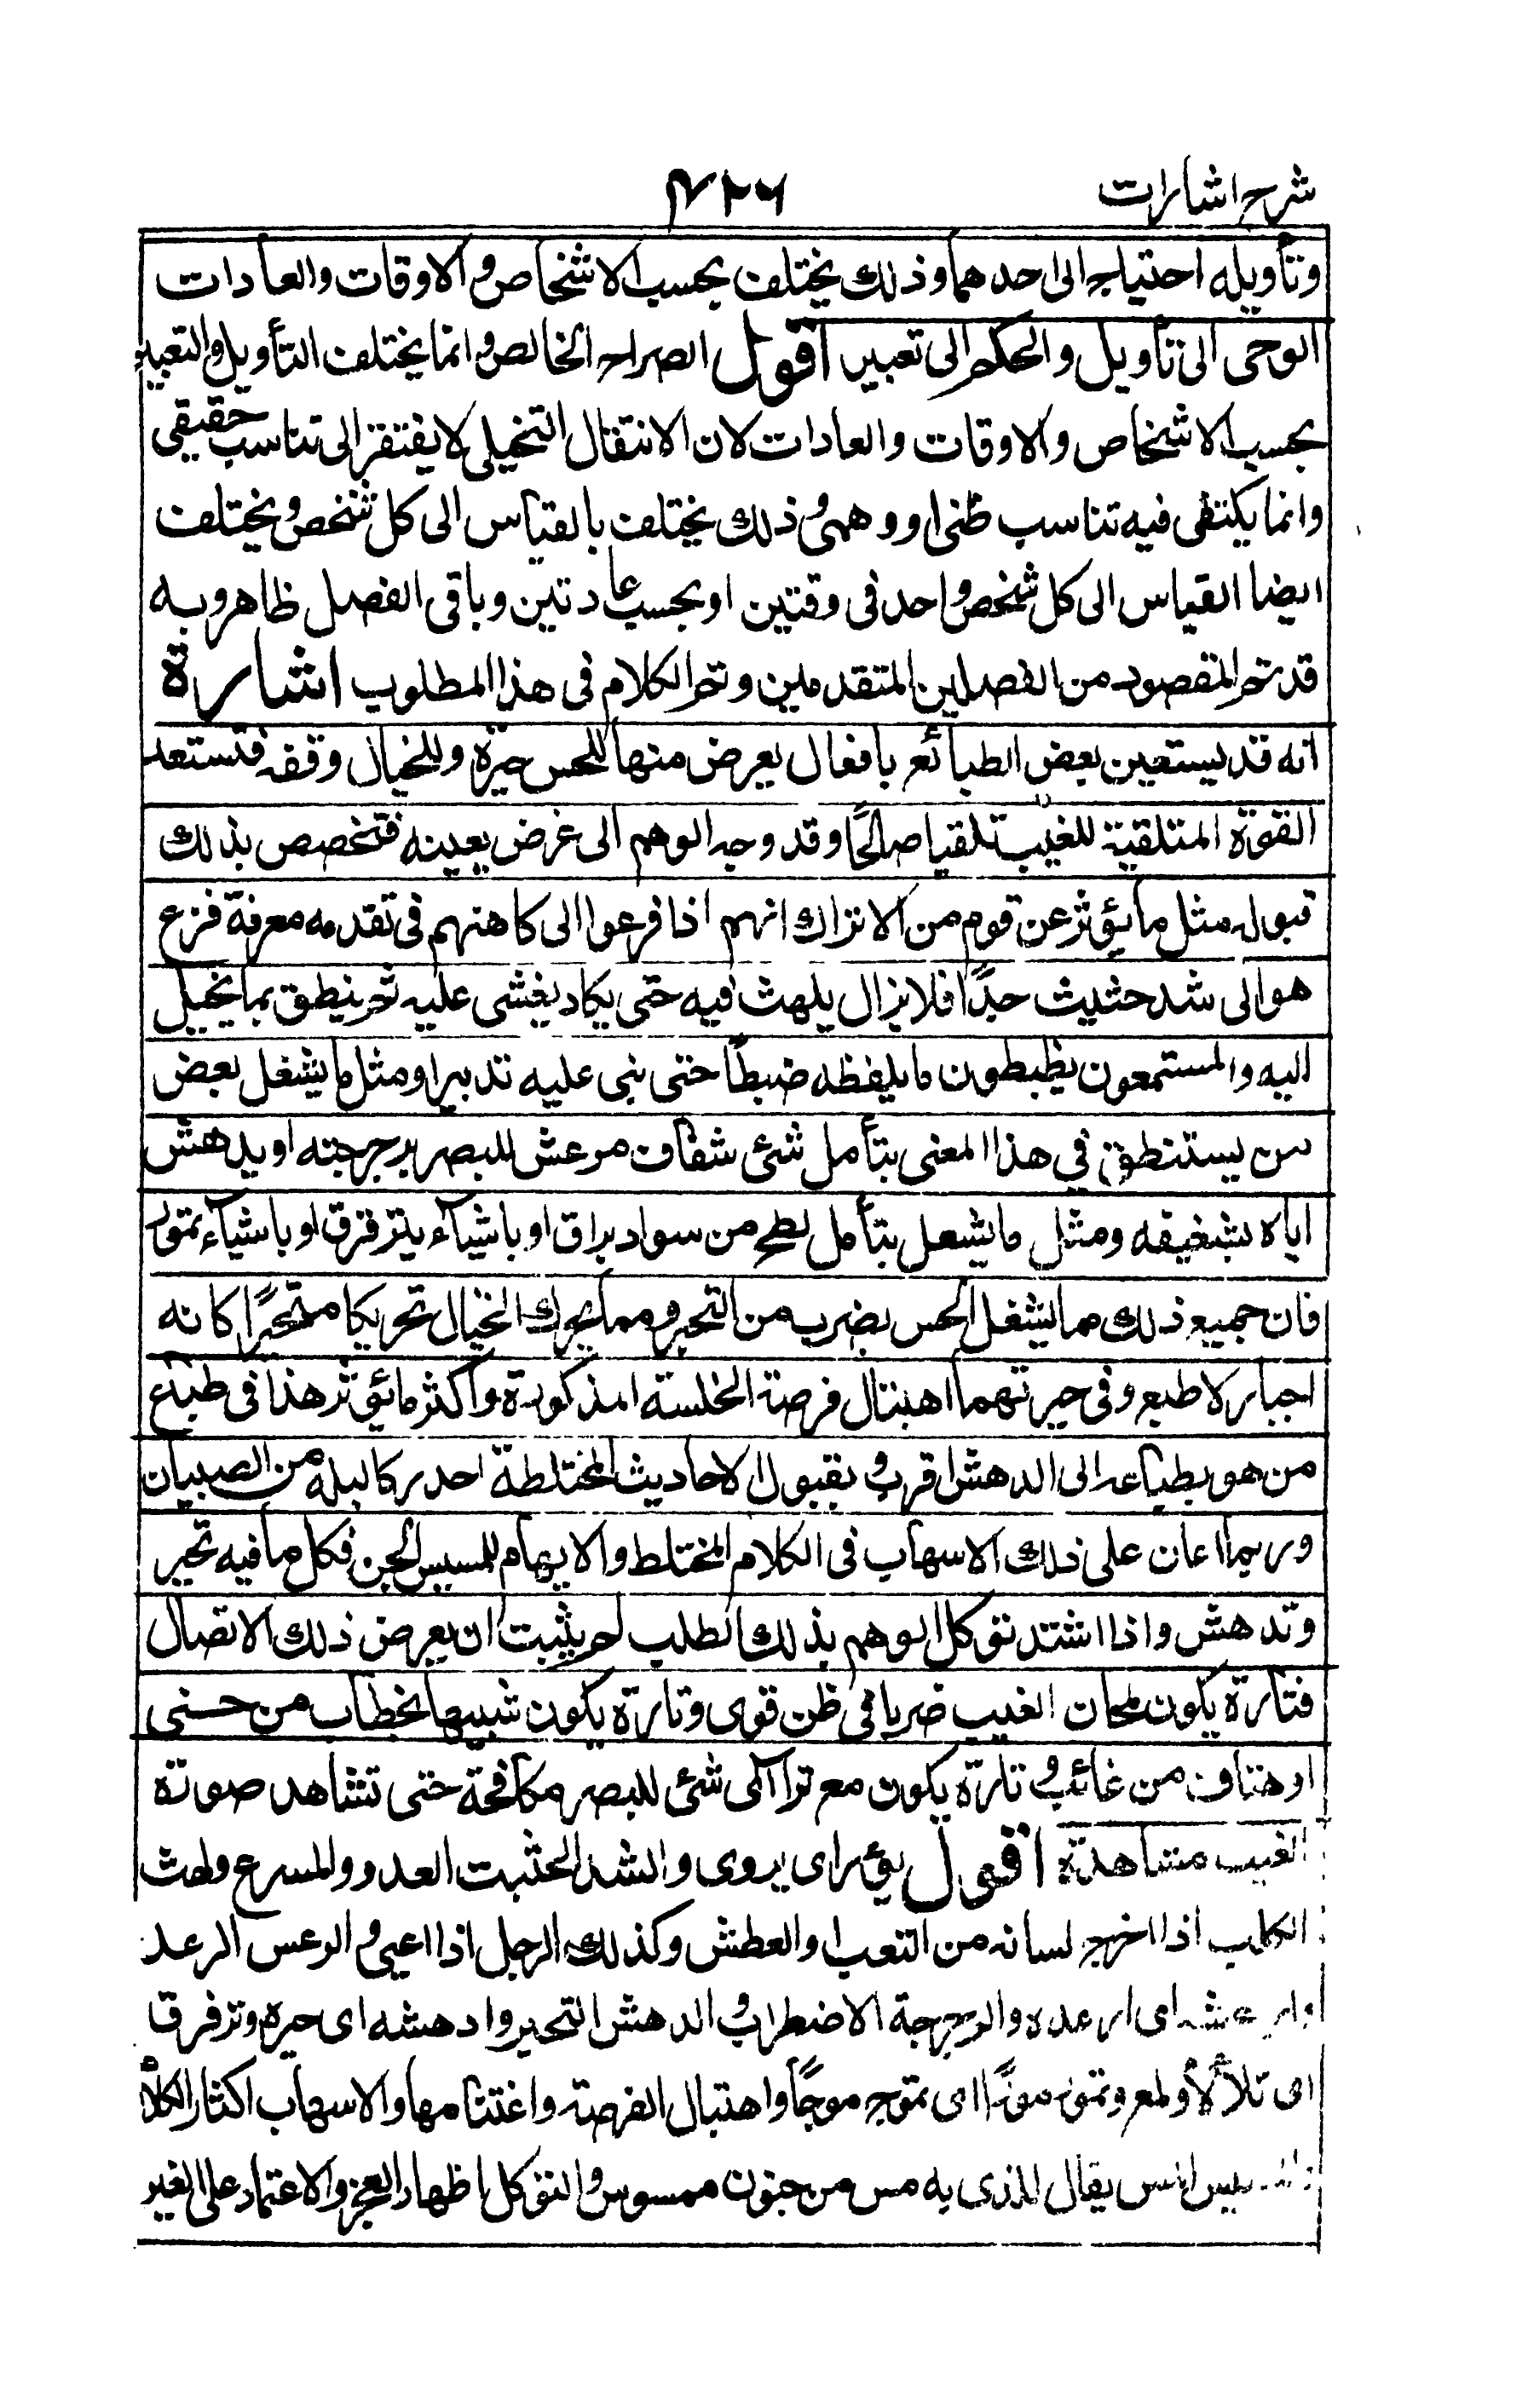 شرح اشارات ۴۲۶
وتأويله احتياج الى احدهما وذلك يختلف بحسب الاشخاص و الاوقات والعادات
الوحى الى تأويل والحكم الى تعبير اقول الصراح الخالص و انما يختلف التأويل والتعبير
بحسب الاشخاص والاوقات والعادات لان الانتقال التخيلى لا يفتقر الى تناسب حقيقى
وانما يكتفى فيه تناسب ظنى او وهمى و ذلك يختلف بالقياس الى كل شخص و يختلف
ايضا القياس الى كل شخص واحد فى وقتين او بحسب عادتين وباقى الفصل ظاهر وبه
قد تم المقصود من الفصلين المتقدمين وتم الكلام فى هذا المطلوب اشارة
انه قد يستعين بعض الطبائع بافعال يعرض منها للحس حيرة وللخيال وقفه فتستعد
القوة المتلقية للغيب تلقيا صالحًا وقد وجه الوهم الى غرض بعينه فتخصص بذلك
قبوله مثل ما يؤثر عن قوم من الاتراك انهم اذا فزعوا الى كاهنهم فى تقدمه معرفة فزع
هو الى شد حثيث جدًا فلا يزال يلهث فيه حتى يكاد يغشى عليه ثم ينطق بما يخيل
اليه والمستمعون يظبطون ما يلفظه ضبطًا حتى بنى عليه تدبيرا ومثل ما يشغل بعض
من يستنطق فى هذا المعنى بتأمل شئ شفاف مرعش للبصر برجرجته او يدهش
اياه بشفيفه ومثل ما يشعل بتأمل لطخ من سواد براق او باشياء يترقرق او باشياء تمور
فان جميع ذلك مما يشغل الحس بضرب من التحير ومما يحرك الخيال تحريكا متحيرًا كانه
اجبار لا طبع وفى حيرتهما اهتبال فرصة الخلسة المذكورة و اكثر ما يؤثر هذا فى طباع
من هو بطباعه الى الدهش اقرب و بقبول الاحاديث المختلطة اجدر كالبله من الصبيان
وربما اعان على ذلك الاسهاب فى الكلام المختلط والايهام لمسيس الجن فكل ما فيه تحير
وتدهش واذا اشتد توكل الوهم بذلك الطلب لم يثبت ان يعرض ذلك الاتصال
فتارة يكون لمحان الغيب ضربا فى ظن قوى وتارة يكون شبيها بخطاب من جنى
او هتاف من غائب و تارة يكون مع ترا آى شئ للبصر مكافحة حتى تشاهد صورة
الغيب مشاهدة اقول يؤثر اى يروى والشد الحثيث العدو والمسرع ولهث
الكلب اذا اخرج لسانه من التعب او العطش وكذلك الرجل اذا اعيى و الرعس الرعد
وارعشه اى ارعده والرجرجة الاضطراب و الدهش التحير وادهشه اى حيره وترقرق
اى تلألأ ولمع وتمور مورًا اى تموج موجًا واهتبال الفرصة واغتنامها والاسهاب اكثار الكلام
المس يقال للذى به مس من جنون ممسوس و التوكل اظهار العجز والاعتماد على الغير